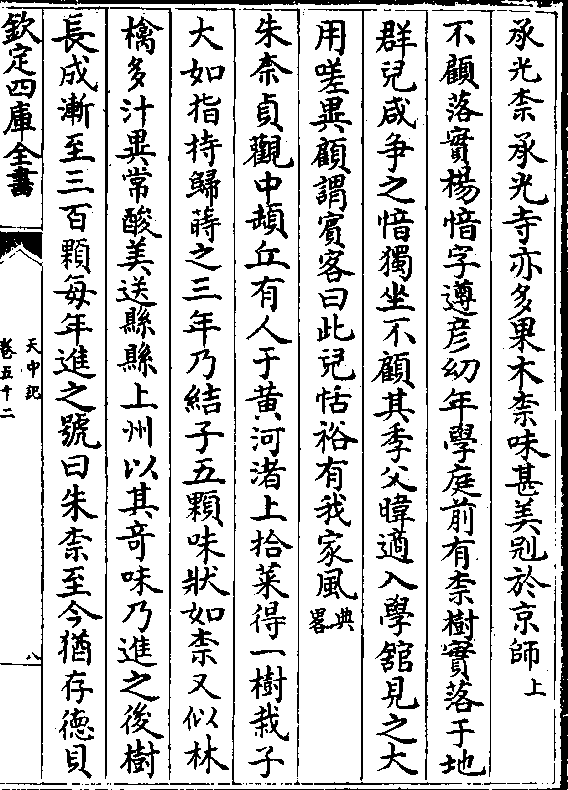 承光柰承光寺亦多果木柰味甚美冠於京師上
不顧落實楊愔字遵彥幼年學庭前有柰樹實落于地
群兒咸争之愔獨坐不顧其季父暐適入學舘見之大
用嗟異顧謂賓客曰此兒恬裕有我家風典畧
朱柰貞觀中頓丘有人于黄河渚上拾菜得一樹栽子
大如指持歸蒔之三年乃結子五顆味狀如柰又似林
檎多汁異常酸美送縣縣上州以其竒味乃進之後樹
長成漸至三百顆每年進之號曰朱柰至今猶存德貝
欽定四庫全書
天中記
卷五十二
八